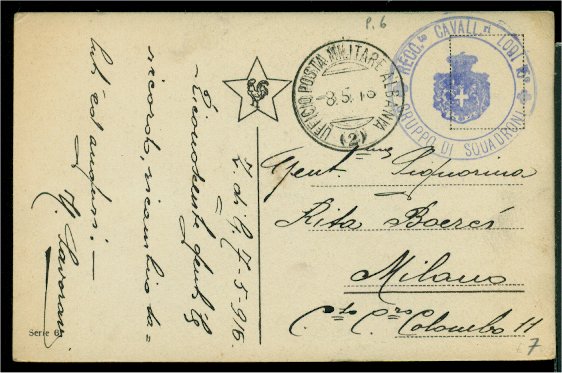 P. 6
UFFICIO POSTA MILITARE ALBANIA
8.5.16
(2)
REGG. CAVALL.ri LODI
GRUPPO DI SQUADRONI
Z. di G. 7-5-916.
Riconoscente gentile
ricordo, ricambio sa=
luti ed auguri. —
Gent.ma Signorina
Rita
Milano
C.so C.ro Colombo 11
Serie 6
7